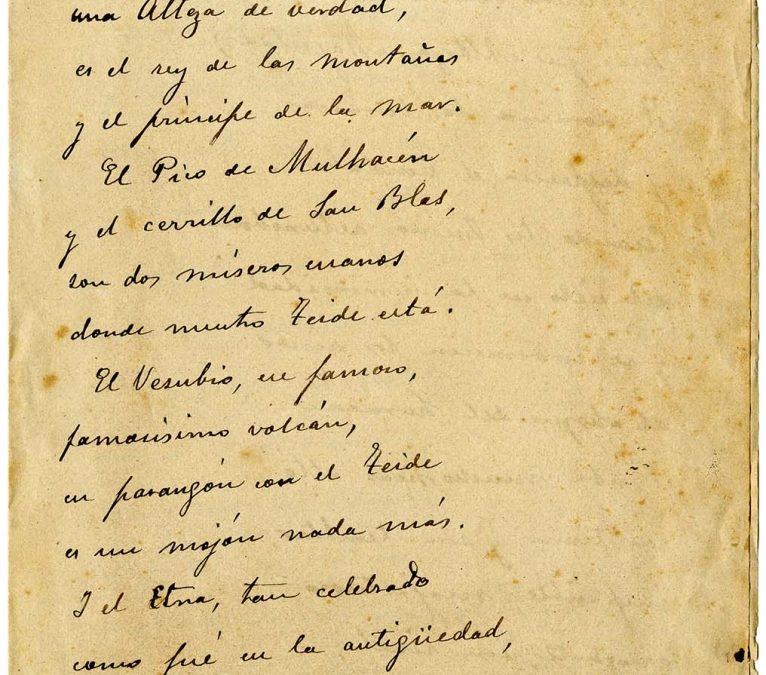 una Alteza de verdad,
es el rey de las montañas
y el príncipe de la mar.
El Pico de Mulhacén
y el cerrillo de San Blas,
son dos míseros enanos
donde nuestro Teide está.
El Vesubio, ese famoso,
famosísimo volcán,
en parangón con el Teide
es un mojón nada más.
Y el Etna, tan celebrado
como fué en la antigüedad,